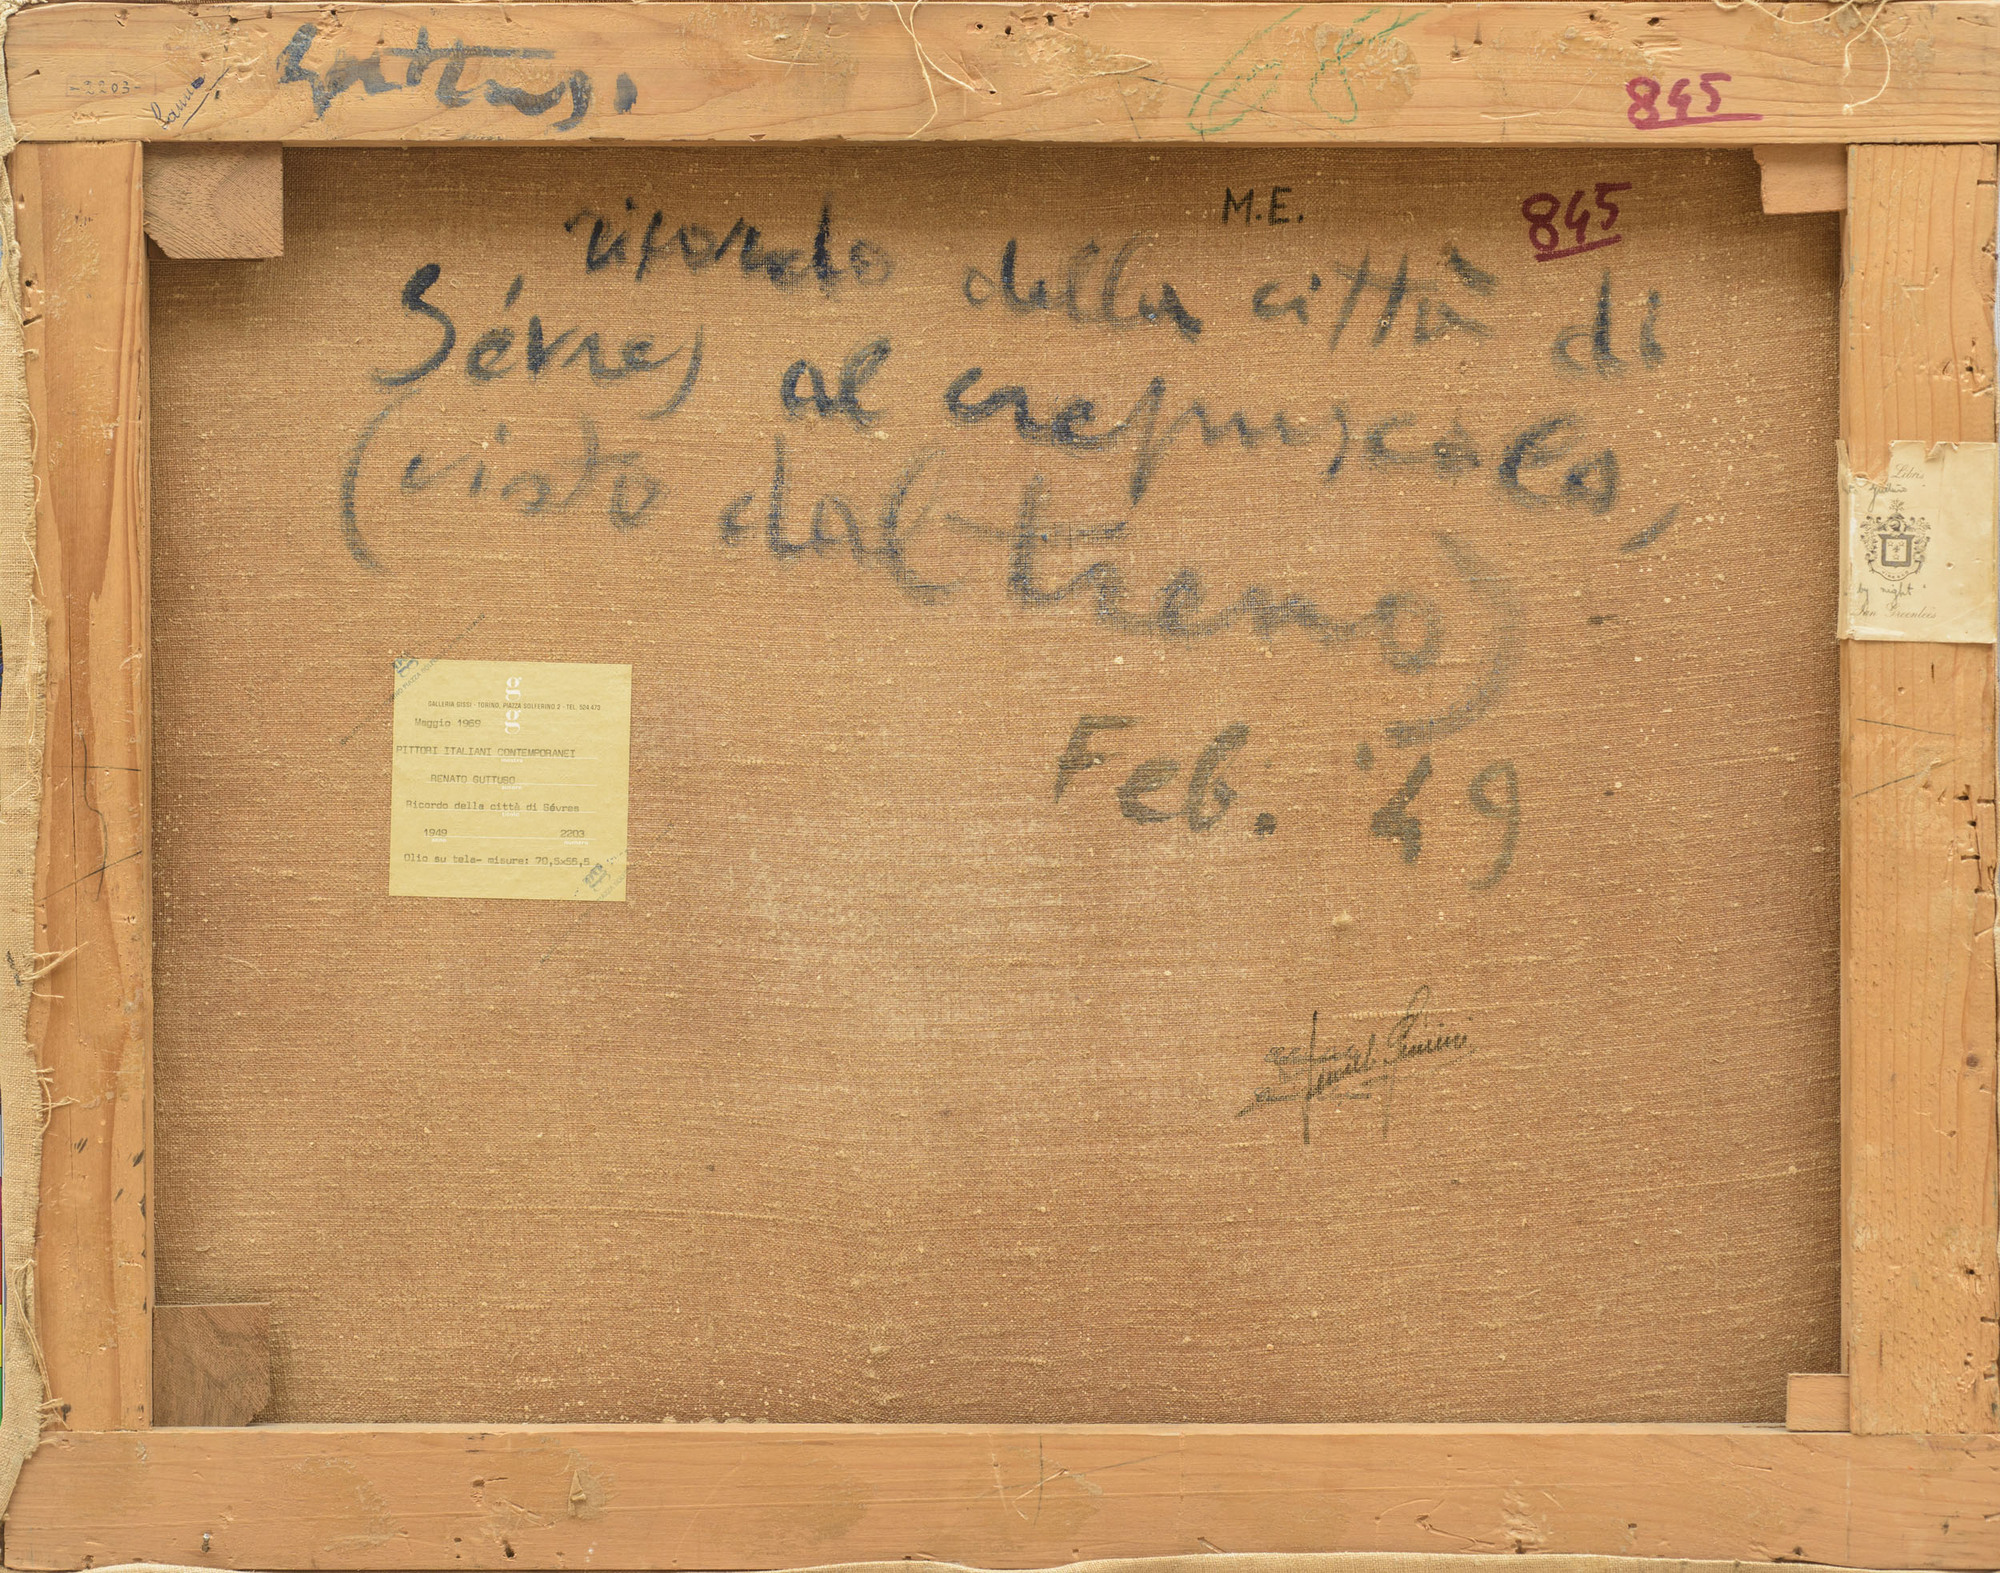 -2203-
Guttuso
845
M.E.
845
ricordo della città di
Sévres al crepuscolo,
(visto dal treno)
Feb. '49
Libris
by night
Ian Greenlees
g
GALLERIA GISSI - TORINO, PIAZZA SOLFERINO 2 - TEL. 524.473
g
Maggio 1969
PITTORI ITALIANI CONTEMPORANEI
mostra
RENATO GUTTUSO
autore
Ricordo della città di Sévres
titolo
1949 2203
anno numero
Olio su tela- misure: 70,5x55,5